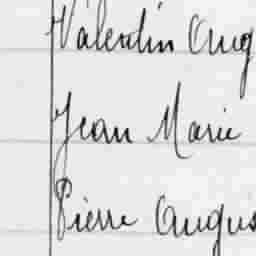 Valentin Aug
Jean Marie
Pierre Augus